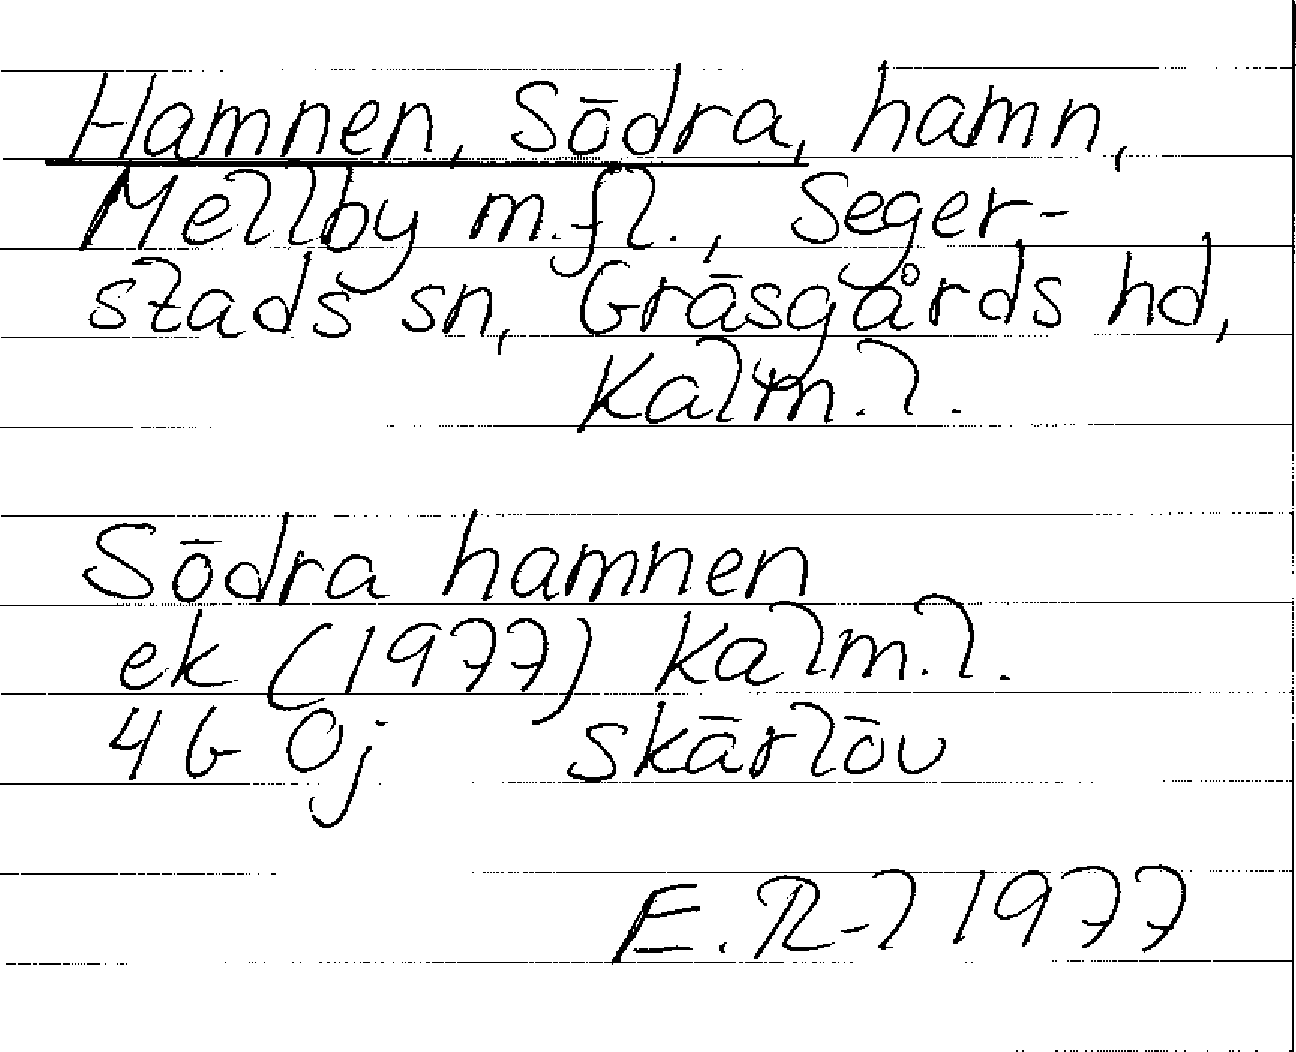 Hamnen, Södra, hamn,
Mellby m.fl., Seger-
stads sn, Gräsgårds hd,
Kalm.l.
Södra hamnen
ek (1977) Kalm.l.
4 G 0j Skärlöv
E. R-l 1977